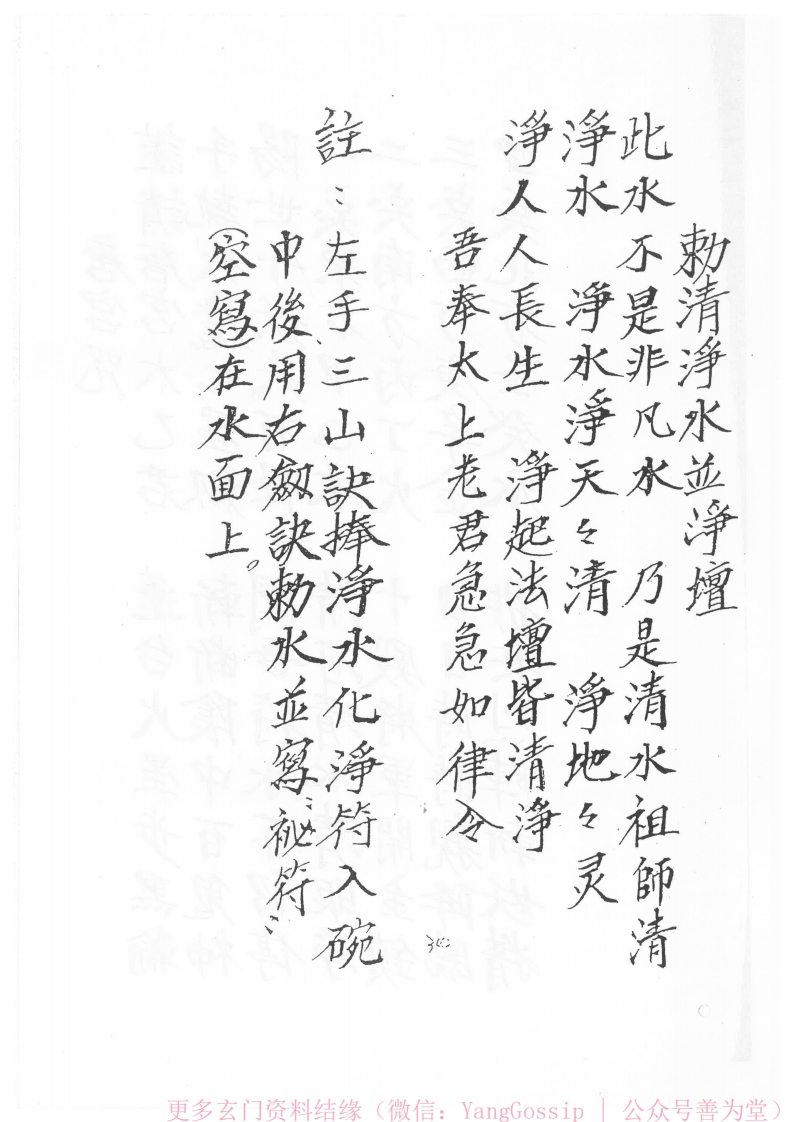 勅清淨水並淨壇
此水不是非凡水　乃是清水祖師清
淨水　淨水淨天々清　淨地々灵
淨人人長生　淨起法壇皆清淨
吾奉太上老君急急如律令
註：左手三山訣捧淨水化淨符入碗
中後用右劍訣勅水並寫：祕符：
(空寫)在水面上。
更多玄门资料结缘（微信：YangGossip | 公众号善为堂）